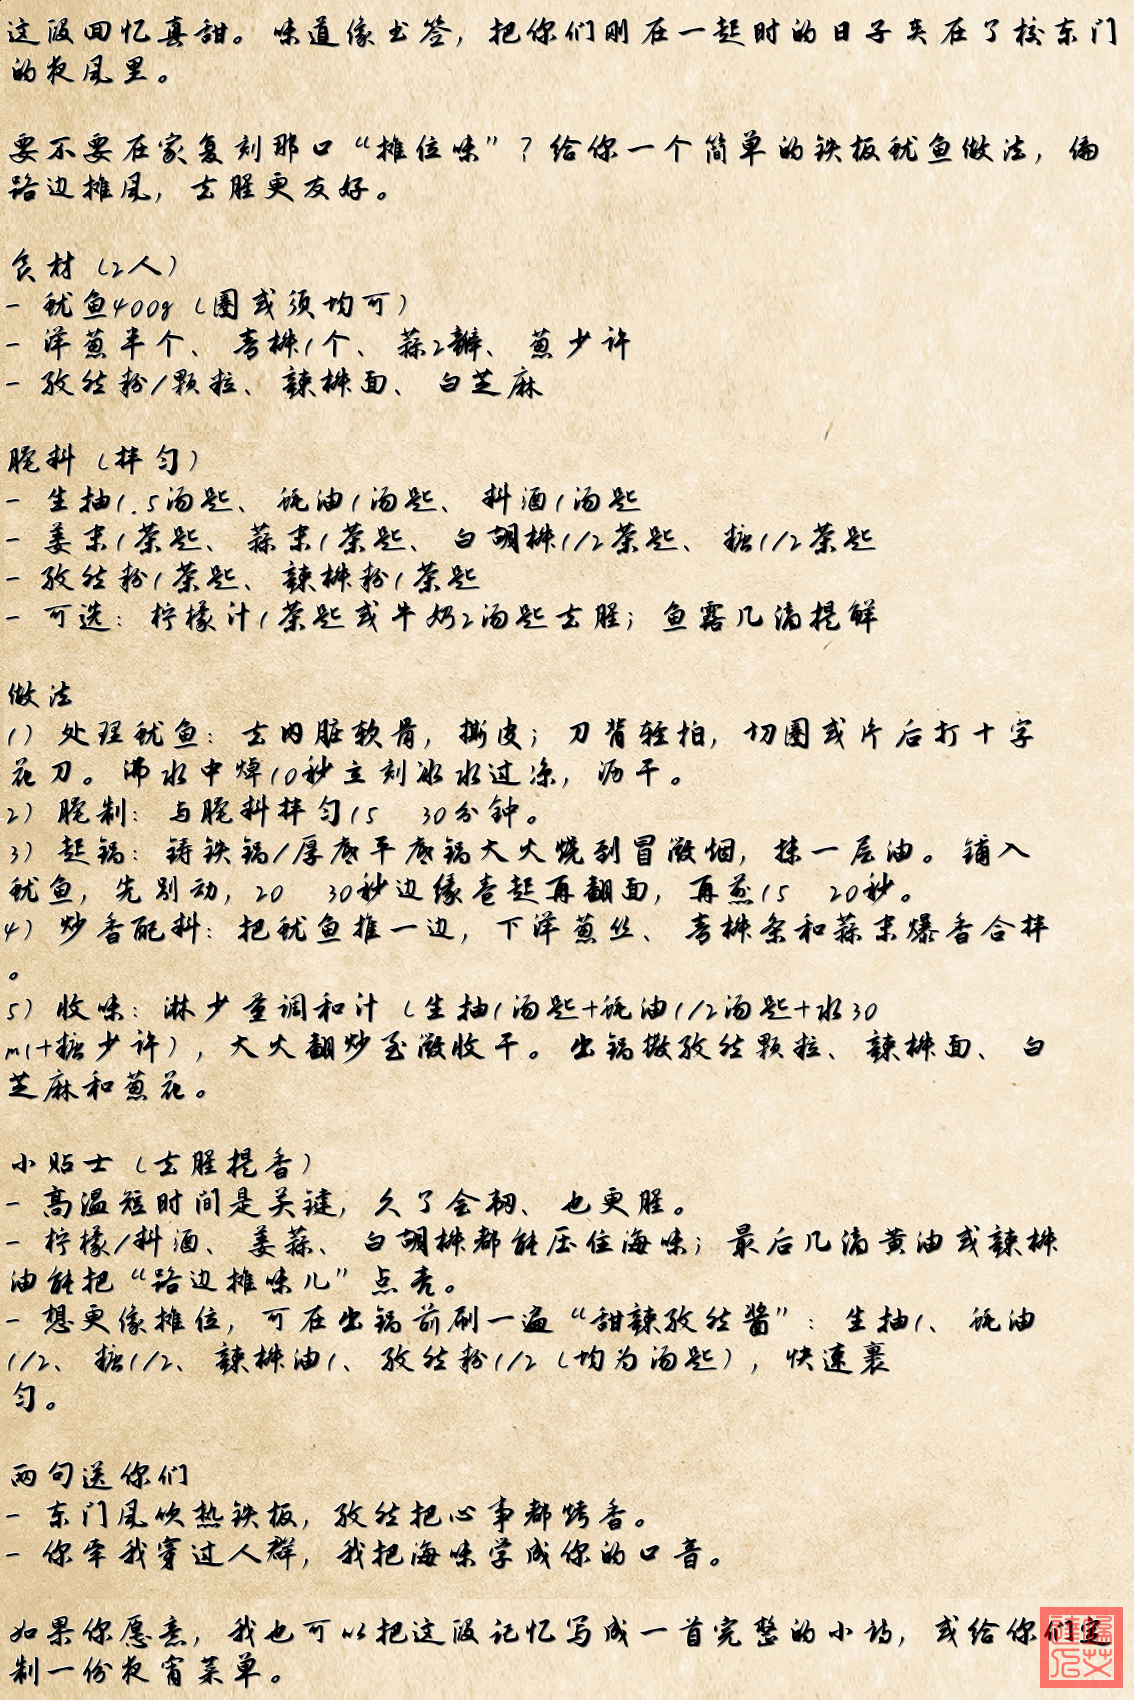 这段回忆真甜。味道像书签，把你们刚在一起时的日子夹在了校东门
的夜风里。
要不要在家复刻那口“摊位味”？给你一个简单的铁板鱿鱼做法，偏
路边摊风，去腥更友好。
食材（2人）
- 鱿鱼400g（圈或须均可）
- 洋葱半个、青椒1个、蒜2瓣、葱少许
- 孜然粉/颗粒、辣椒面、白芝麻
腌料（拌匀）
- 生抽1.5汤匙、蚝油1汤匙、料酒1汤匙
- 姜末1茶匙、蒜末1茶匙、白胡椒1/2茶匙、糖1/2茶匙
- 孜然粉1茶匙、辣椒粉1茶匙
- 可选：柠檬汁1茶匙或牛奶2汤匙去腥；鱼露几滴提鲜
做法
1）处理鱿鱼：去内脏软骨，撕皮；刀背轻拍，切圈或片后打十字
花刀。沸水中焯10秒立刻冰水过凉，沥干。
2）腌制：与腌料拌匀15 30分钟。
3）起锅：铸铁锅/厚底平底锅大火烧到冒微烟，抹一层油。铺入
鱿鱼，先别动，20 30秒边缘卷起再翻面，再煎15 20秒。
4）炒香配料：把鱿鱼推一边，下洋葱丝、青椒条和蒜末爆香合拌
。
5）收味：淋少量调和汁（生抽1汤匙+蚝油1/2汤匙+水30
ml+糖少许），大火翻炒至微收干。出锅撒孜然颗粒、辣椒面、白
芝麻和葱花。
小贴士（去腥提香）
- 高温短时间是关键，久了会韧、也更腥。
- 柠檬/料酒、姜蒜、白胡椒都能压住海味；最后几滴黄油或辣椒
油能把“路边摊味儿”点亮。
- 想更像摊位，可在出锅前刷一遍“甜辣孜然酱”：生抽1、蚝油
1/2、糖1/2、辣椒油1、孜然粉1/2（均为汤匙），快速裹
匀。
两句送你们
- 东门风吹热铁板，孜然把心事都烤香。
- 你牵我穿过人群，我把海味学成你的口音。
如果你愿意，我也可以把这段记忆写成一首完整的小诗，或给你们定
制一份夜宵菜单。